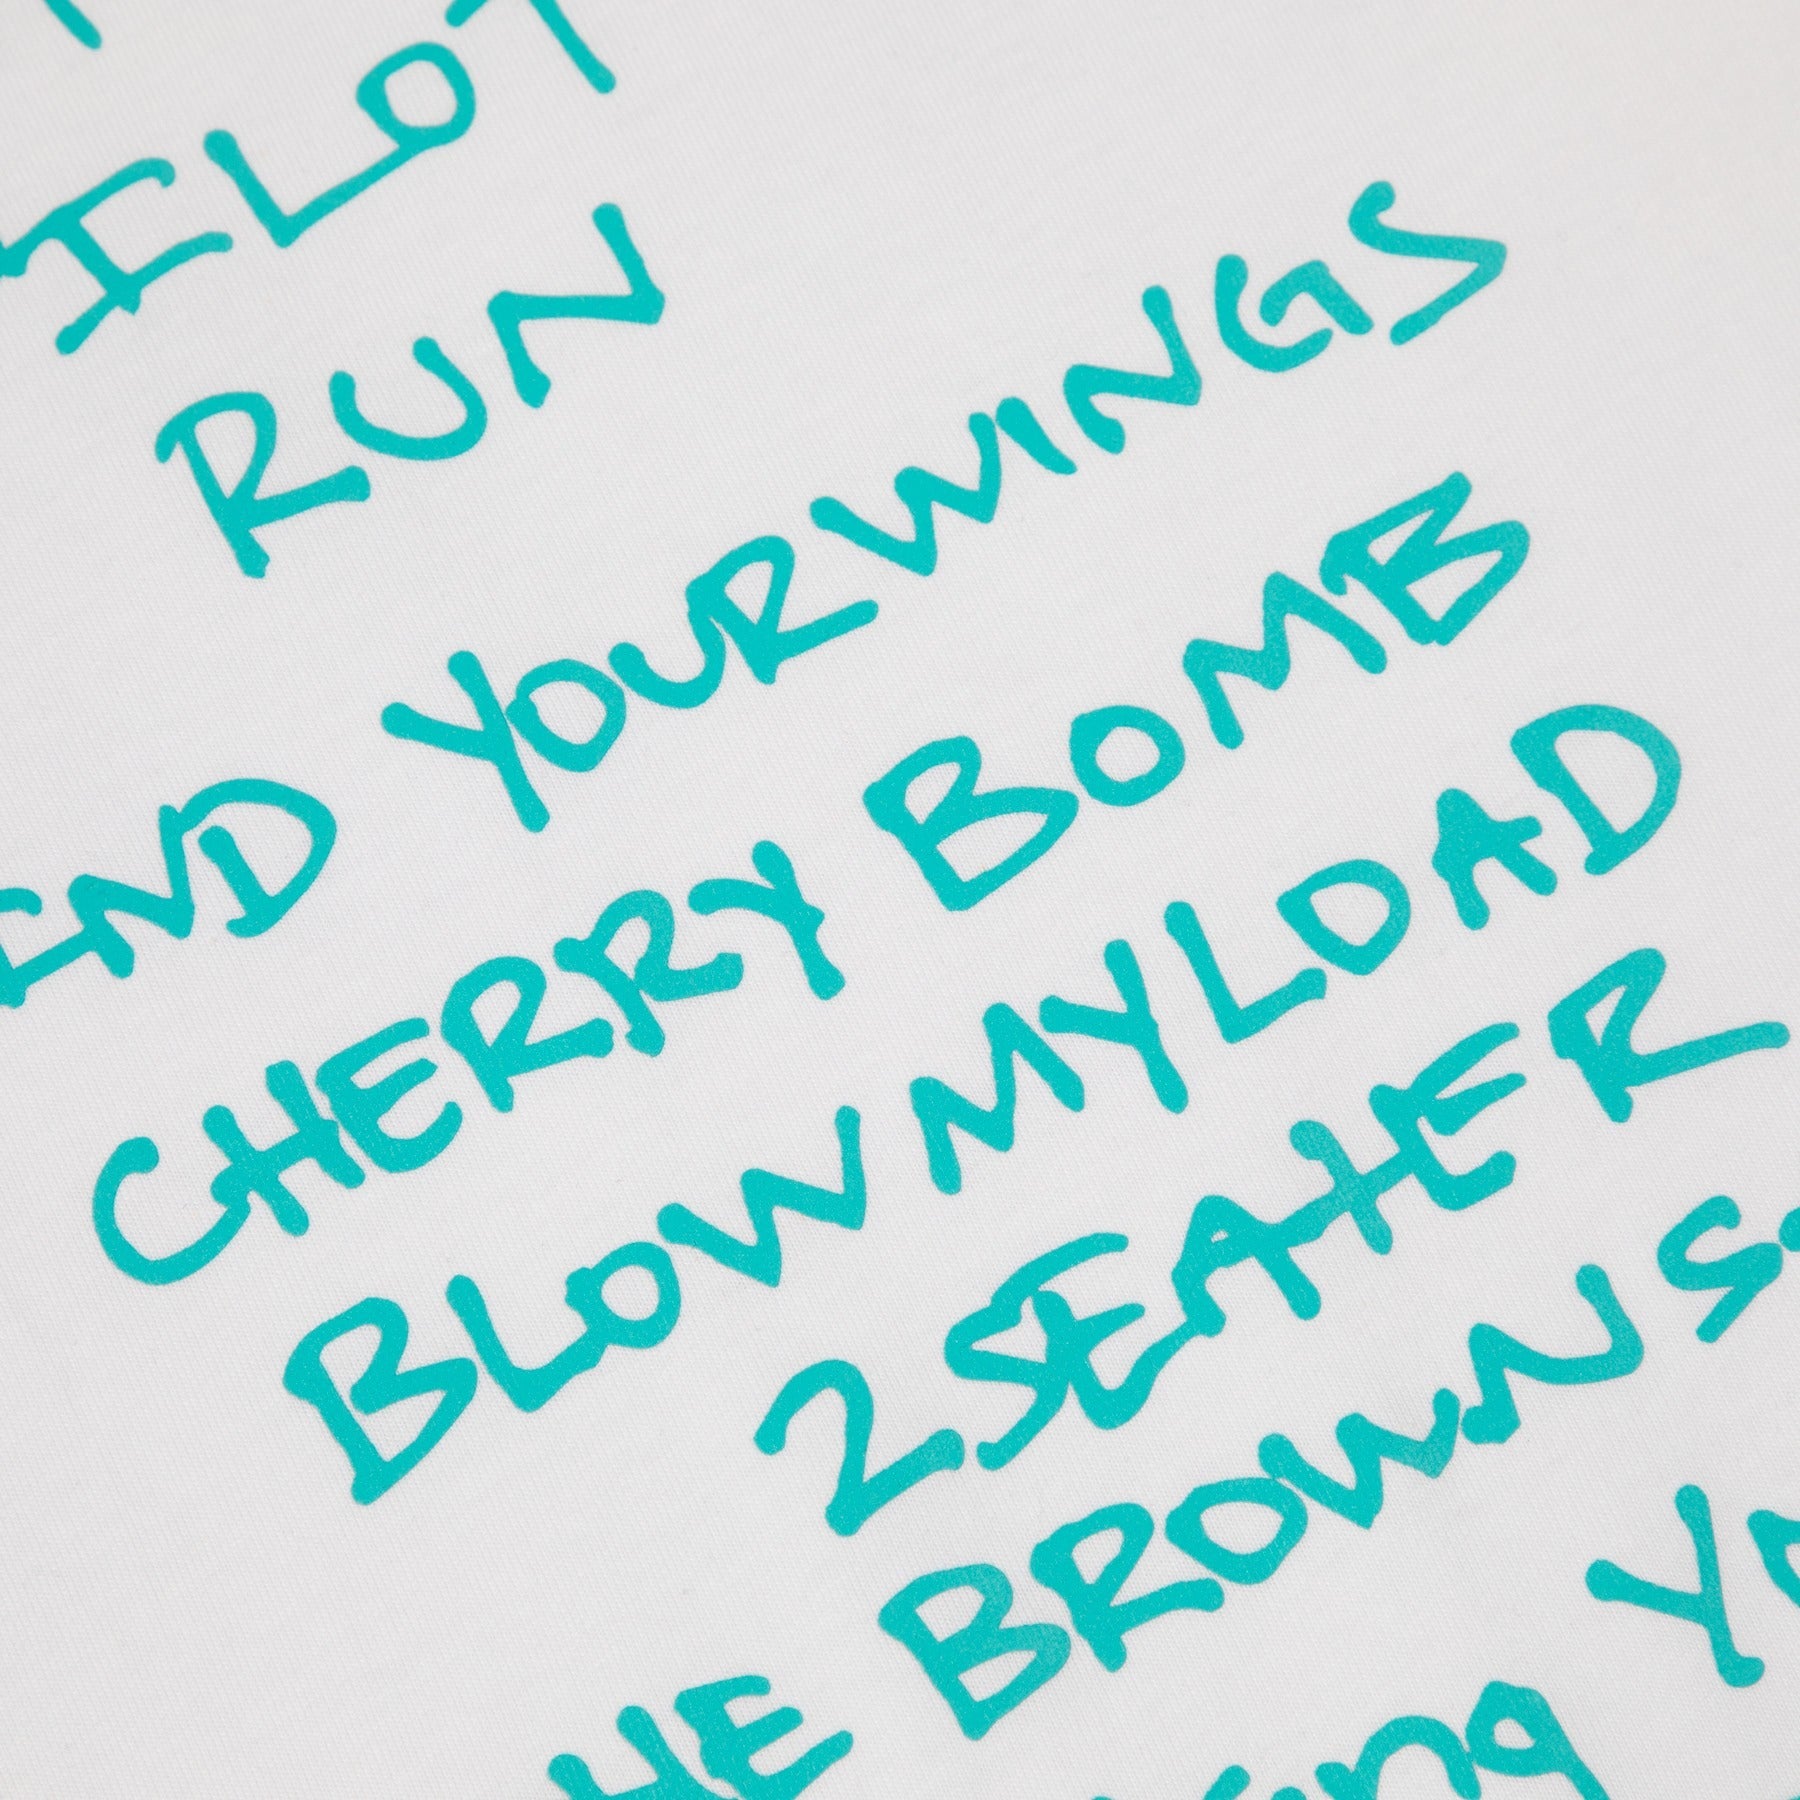 ILOT
RUN
END YOUR WINGS
CHERRY BOMB
BLOW MY LOAD
2SEATER
HE BROWN S
ing Y